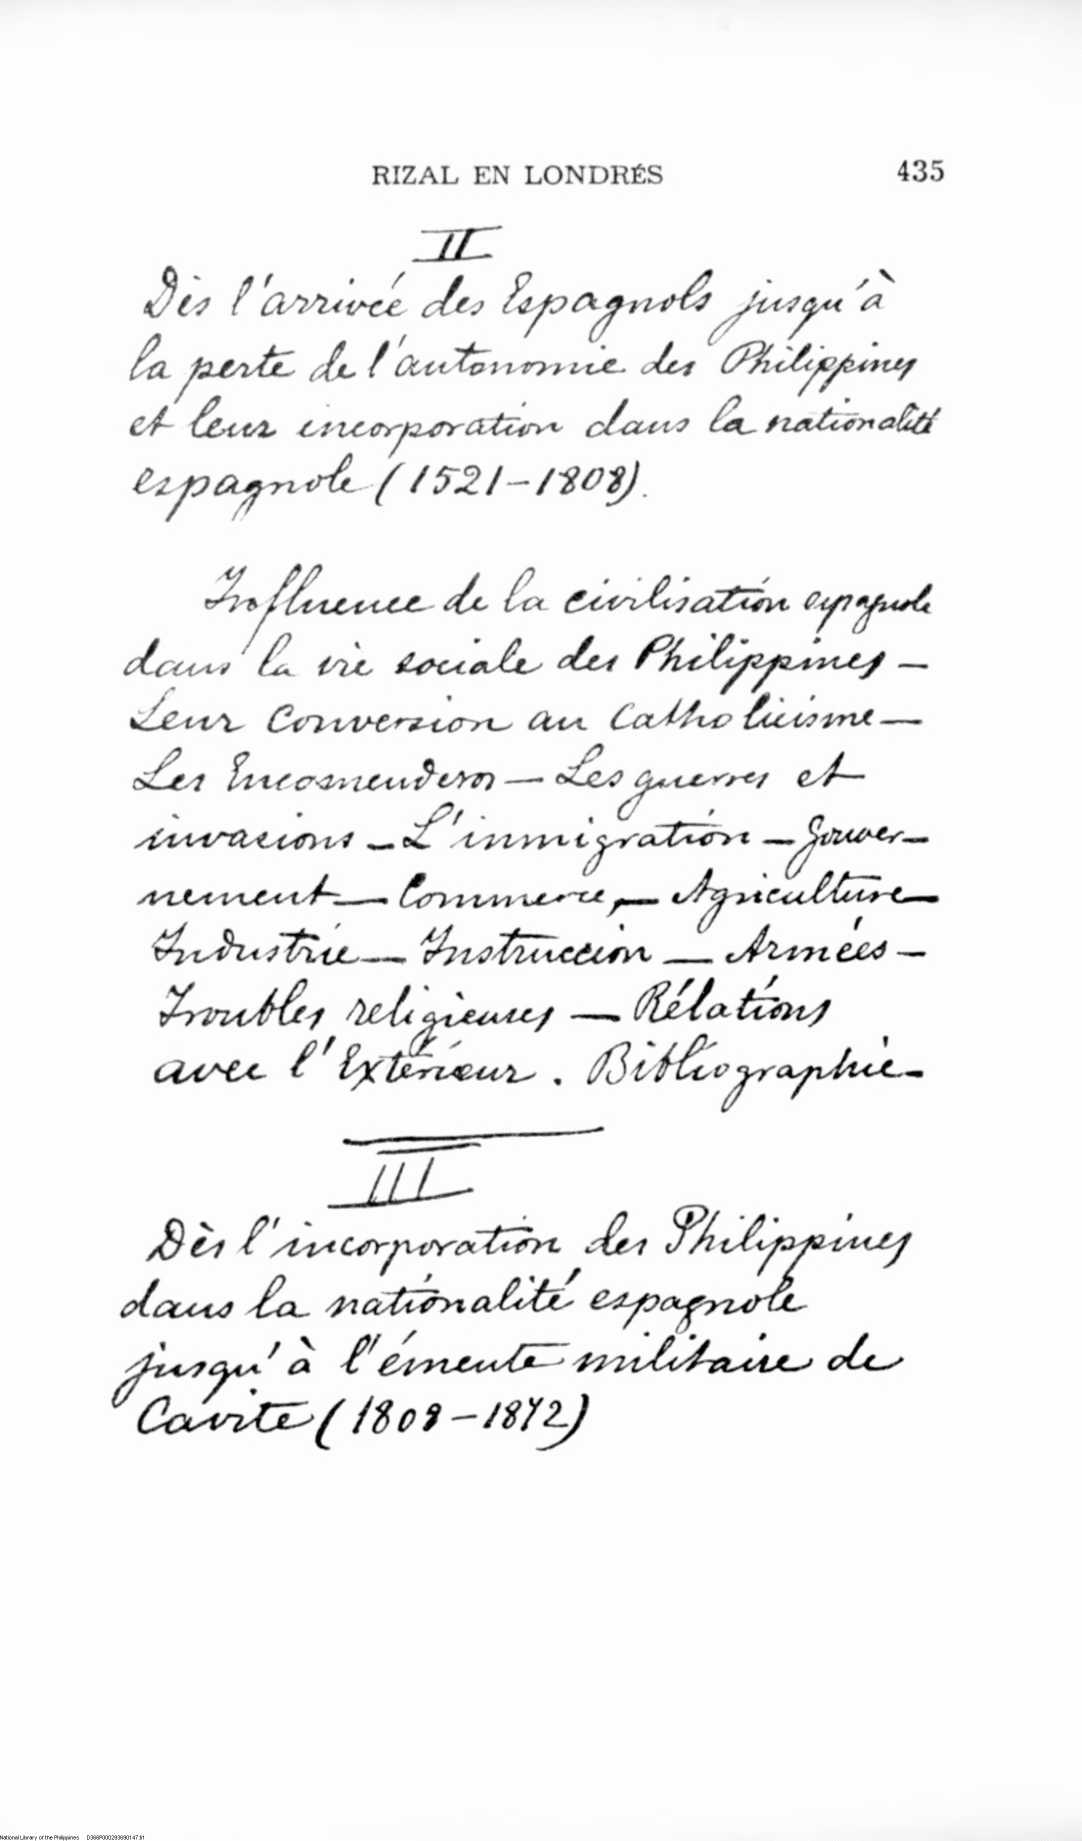 RIZAL EN LONDRÉS 435
II
Dès l'arrivée des Espagnols jusqu'à
la perte de l'autonomie des Philippines
et leur incorporation dans la nationalité
espagnole (1521-1808).
Influence de la civilisation espagnole
dans la vie sociale des Philippines —
Leur conversion au Catholicisme —
Les Encomenderos — Les guerres et
invasions — L'inmigration — Gouver-
nement — Commerce, — Agriculture —
Industrie — Instruccion — Armées —
Troubles religieuses — Rélations
avec l'Extérieur. Bibliographie —
III
Dès l'incorporation des Philippines
dans la nationalité espagnole
jusqu'à l'émeute militaire de
Cavite (1808-1872)
National Library of the Philippines